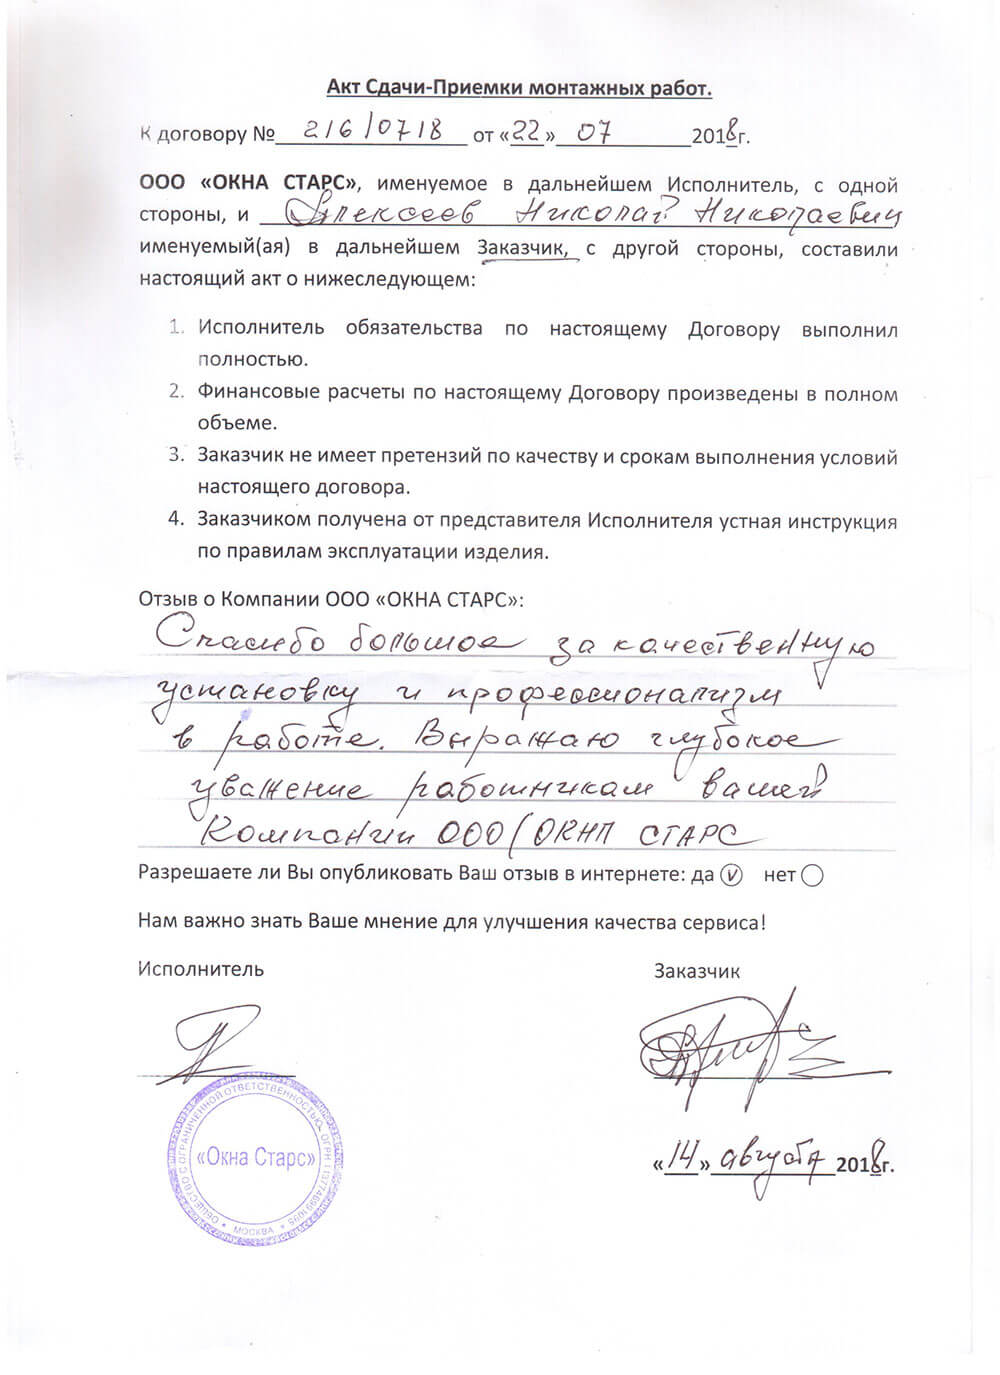 Акт Сдачи-Приемки монтажных работ.
К договору № 216/0718 от «22» 07 2018г.
ООО «ОКНА СТАРС», именуемое в дальнейшем Исполнитель, с одной
стороны, и Алексеев Николай Николаевич
именуемый(ая) в дальнейшем Заказчик, с другой стороны, составили
настоящий акт о нижеследующем:
1. Исполнитель обязательства по настоящему Договору выполнил
полностью.
2. Финансовые расчеты по настоящему Договору произведены в полном
объеме.
3. Заказчик не имеет претензий по качеству и срокам выполнения условий
настоящего договора.
4. Заказчиком получена от представителя Исполнителя устная инструкция
по правилам эксплуатации изделия.
Отзыв о Компании ООО «ОКНА СТАРС»:
Спасибо большое за качественную
установку и профессионализм
в работе. Выражаю глубокое
уважение работникам вашей
Компании ООО (ОКНА СТАРС
Разрешаете ли Вы опубликовать Ваш отзыв в интернете: да (v) нет ○
Нам важно знать Ваше мнение для улучшения качества сервиса!
Исполнитель Заказчик
ОБЩЕСТВО С ОГРАНИЧЕННОЙ ОТВЕТСТВЕННОСТЬЮ, ОГРН
«Окна Старс»
* МОСКВА *
«14» августа 2018г.